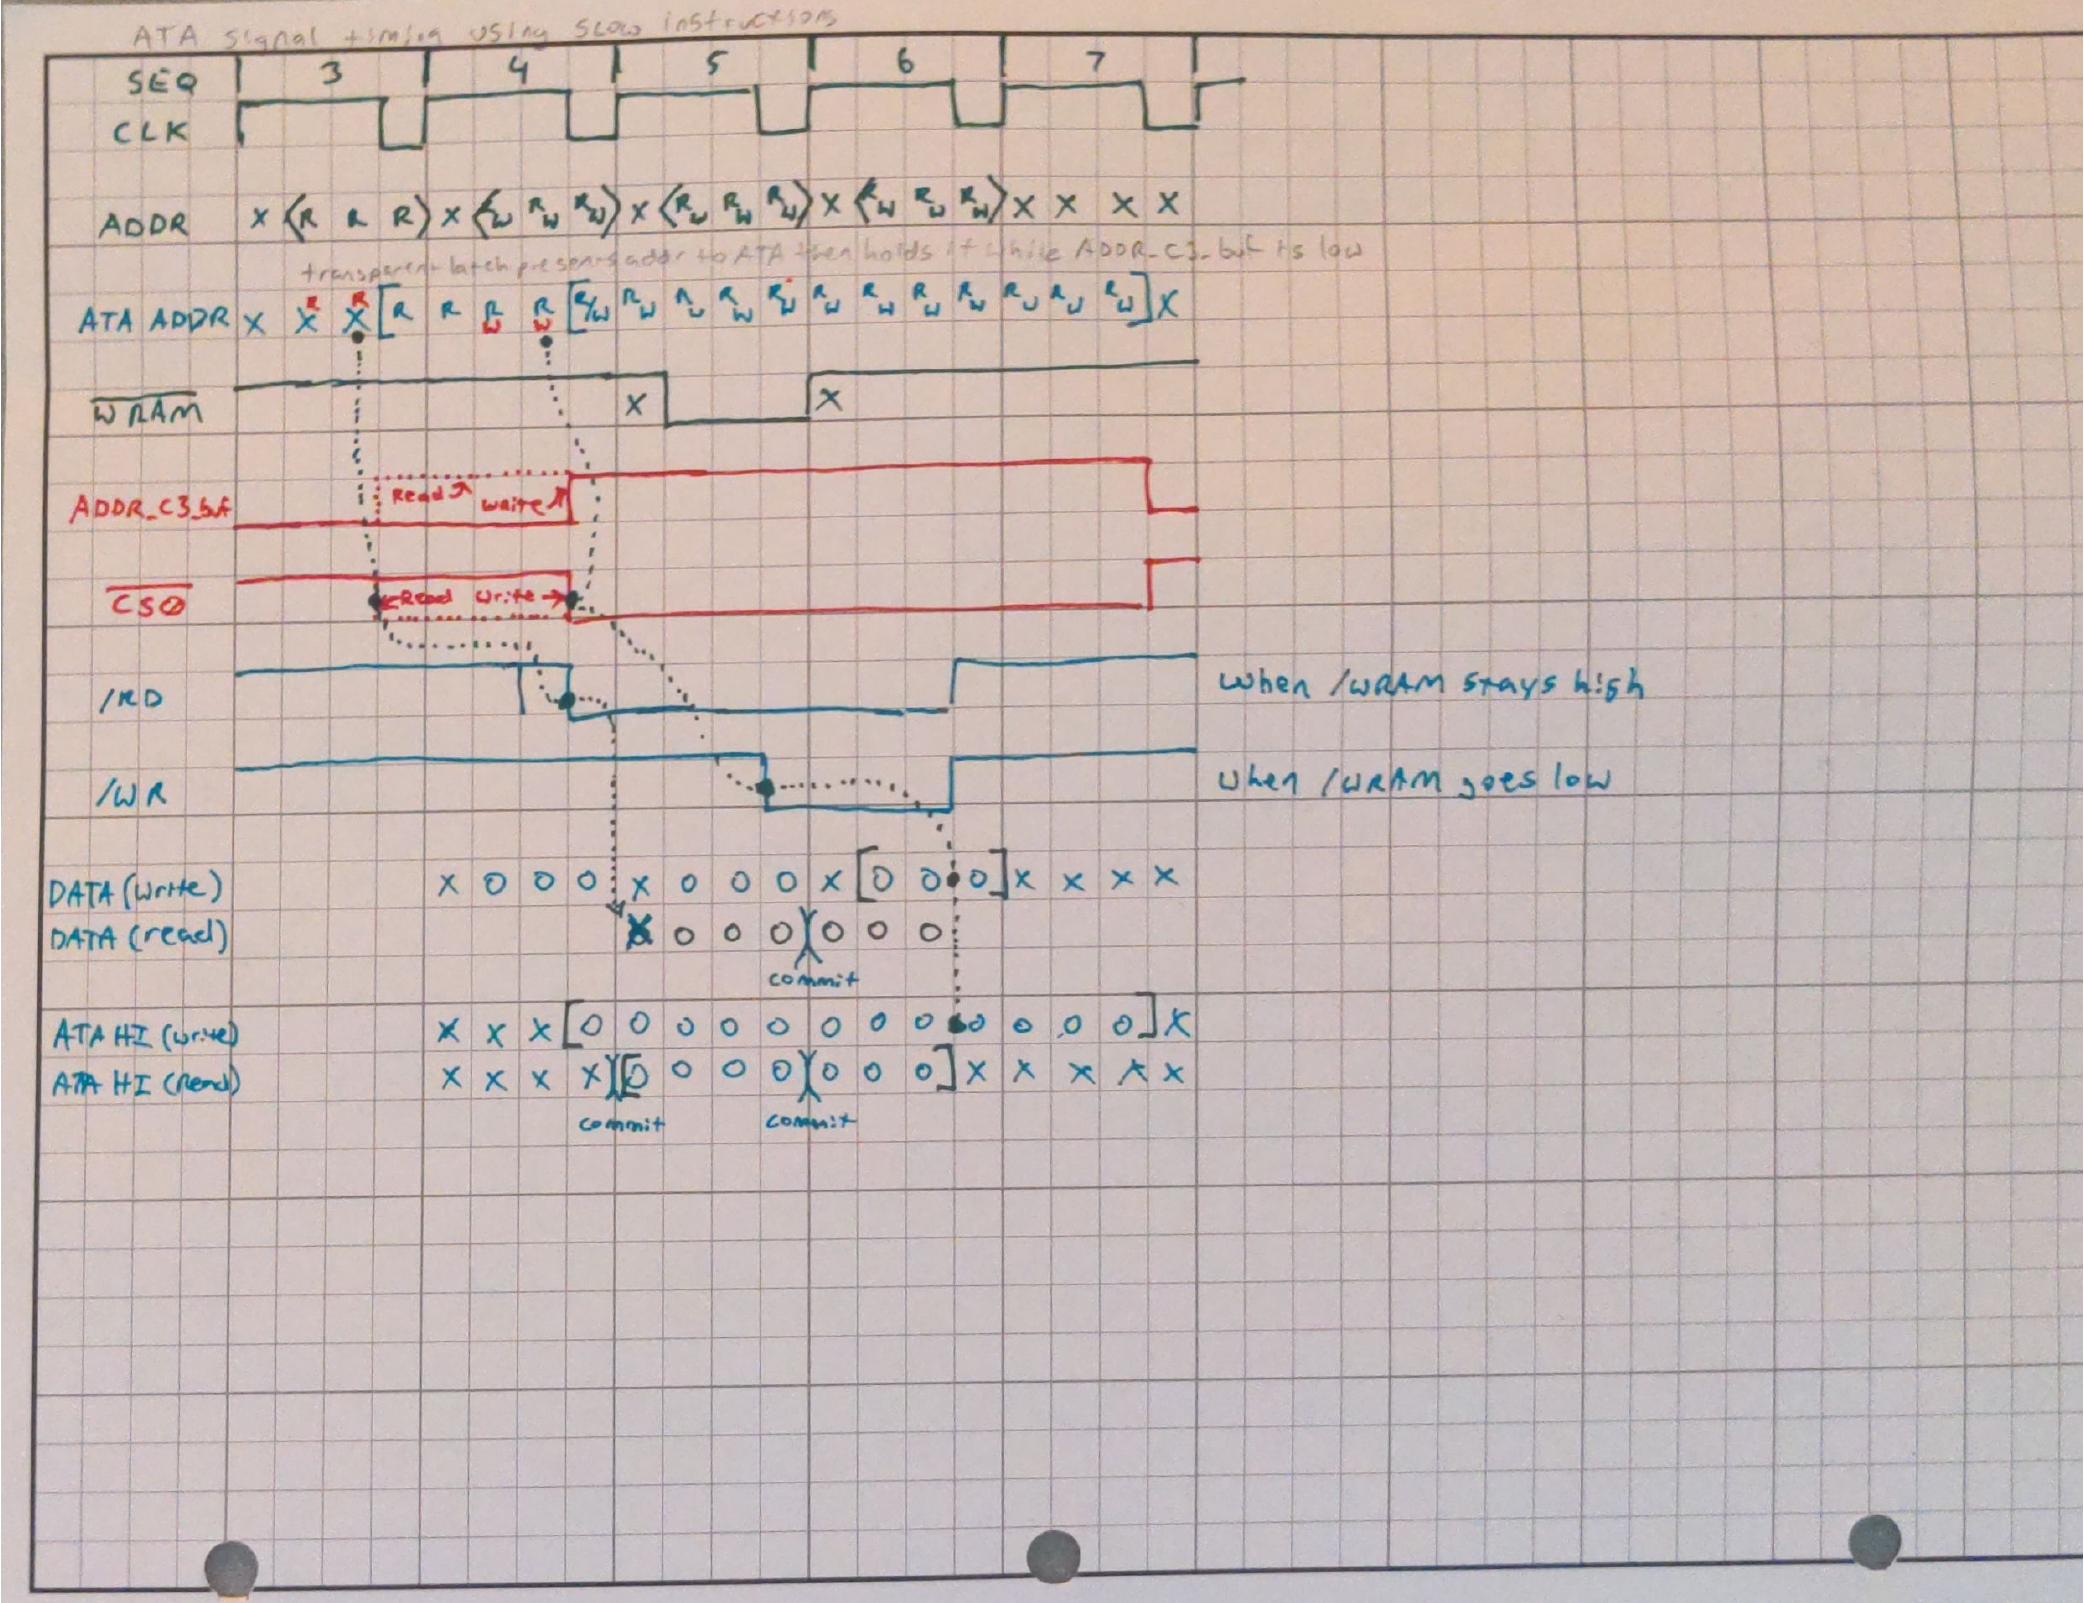 ATA signal timing using slow instructions
SEQ 3 4 5 6 7
CLK
ADDR X ⟨R R R⟩ X ⟨R/W R/W R/W⟩ X ⟨R/W R/W R/W⟩ X ⟨R/W R/W R/W⟩ X X X X
transparent latch presents addr to ATA then holds it while ADDR_C3_buf is low
R R
ATA ADDR X X X [R R R/W R/W [R/W R/W R/W R/W R/W R/W R/W R/W R/W R/W R/W R/W] X
WRAM X X
ADDR_C3_buf Read Write
CS0 ←Read Write→
/RD when /WRAM stays high
/WR when /WRAM goes low
DATA (write) X O O O X O O O X [O O O] X X X X
DATA (read) X O O O)(O O O
commit
ATA HI (write) X X X [O O O O O O O O O O O O] X
ATA HI (read) X X X X)([O O O O)(O O O] X X X X X
commit commit